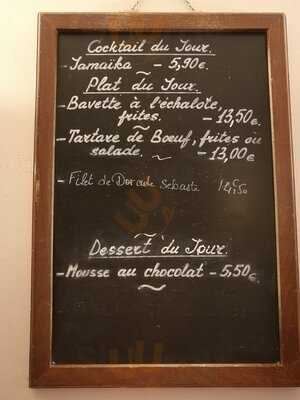 Cocktail du Jour.
- Jamaika - 5,90€.
Plat du Jour.
- Bavette à l'échalote,
frites. - 13,50€.
- Tartare de Boeuf, frites ou
salade. - 13,00€
- Filet de Dorade Sebaste
Dessert du Jour.
- Mousse au chocolat - 5,50€.